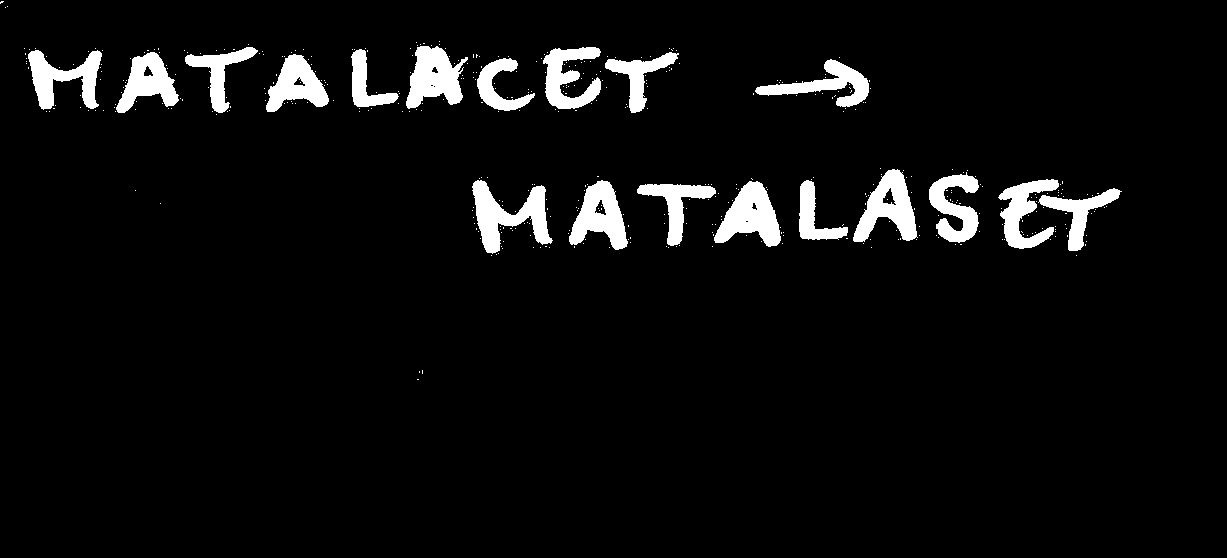 MATALACET →
MATALASET